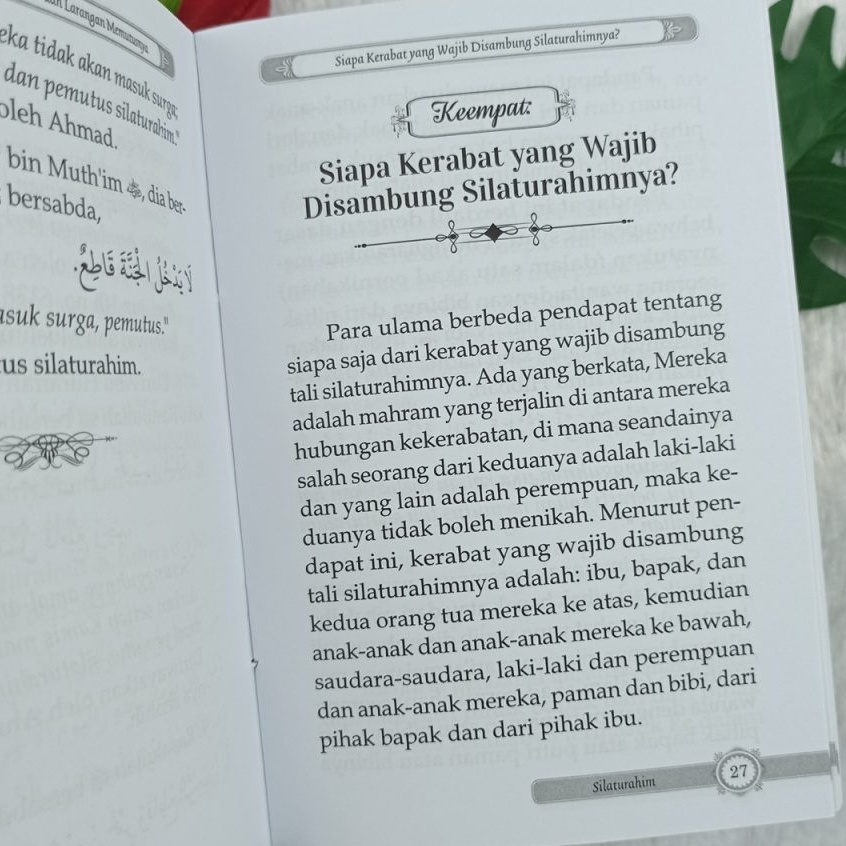 Larangan Memutusnya
eka tidak akan masuk surga;
dan pemutus silaturahim."
oleh Ahmad.
bin Muth'im ﷺ, dia ber-
bersabda,
لَا يَدْخُلُ الْجَنَّةَ قَاطِعٌ.
asuk surga, pemutus."
us silaturahim.
Siapa Kerabat yang Wajib Disambung Silaturahimnya?
Keempat:
Siapa Kerabat yang Wajib
Disambung Silaturahimnya?
Para ulama berbeda pendapat tentang
siapa saja dari kerabat yang wajib disambung
tali silaturahimnya. Ada yang berkata, Mereka
adalah mahram yang terjalin di antara mereka
hubungan kekerabatan, di mana seandainya
salah seorang dari keduanya adalah laki-laki
dan yang lain adalah perempuan, maka ke-
duanya tidak boleh menikah. Menurut pen-
dapat ini, kerabat yang wajib disambung
tali silaturahimnya adalah: ibu, bapak, dan
kedua orang tua mereka ke atas, kemudian
anak-anak dan anak-anak mereka ke bawah,
saudara-saudara, laki-laki dan perempuan
dan anak-anak mereka, paman dan bibi, dari
pihak bapak dan dari pihak ibu.
Silaturahim
27